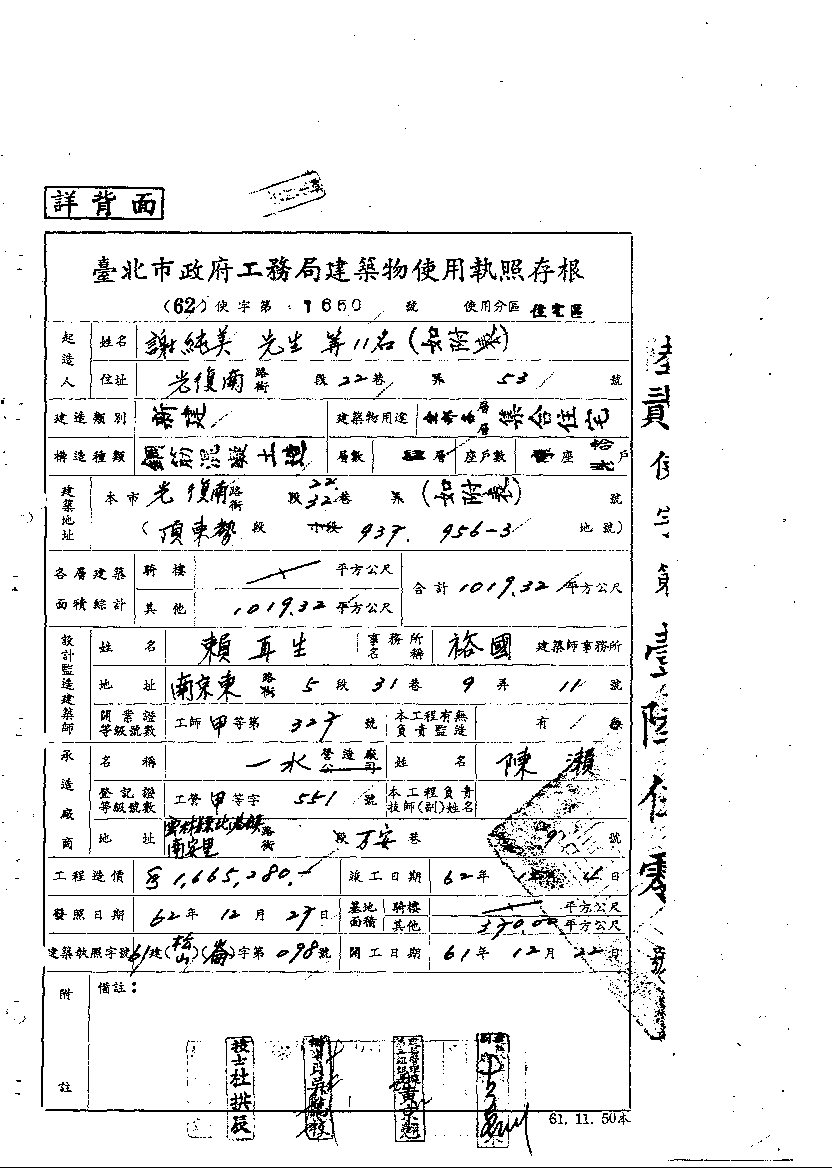 詳背面
臺北市政府工務局建築物使用執照存根
(62)使字第 1650 號 使用分區 住宅區
起造人 姓名 謝純美 先生 等11名
住址 光復南 路街 段 22 巷 弄 53 號
建造類別 新建 建築物用途 層 集合住宅
構造種類 鋼筋混凝土造 層數 層 座戶數 座 戶
建築地址 本市 光復南 路街 段 22. 32 巷 弄 (如附表) 號
(頂東勢 段 小段 937. 956-3 地號)
各層建築面積綜計 騎樓 平方公尺 合計 1019.32 平方公尺
其他 1019.32 平方公尺
設計監造建築師 姓名 賴再生 事務所名稱 裕國 建築師事務所
地址 南京東 路街 5 段 31 巷 9 弄 11 號
開業證等級號數 工師 甲 等第 327 號 本工程有無負責監造 有
承造廠商 名稱 一水 營造廠公司 姓名 陳瀨
登記證等級號數 工營 甲 等字 551 號 本工程負責技師(副)姓名
地址 南安里 路街 段 萬安 巷 號
工程造價 1,665,280.- 竣工日期 62年 日
發照日期 62年 12月 27日 基地面積 騎樓 平方公尺
其他 平方公尺
建築執照字號 61建(松山)(崙)字第 098 號 開工日期 61年 12月 22日
附註 備註：
技士杜拱辰
61. 11. 50本